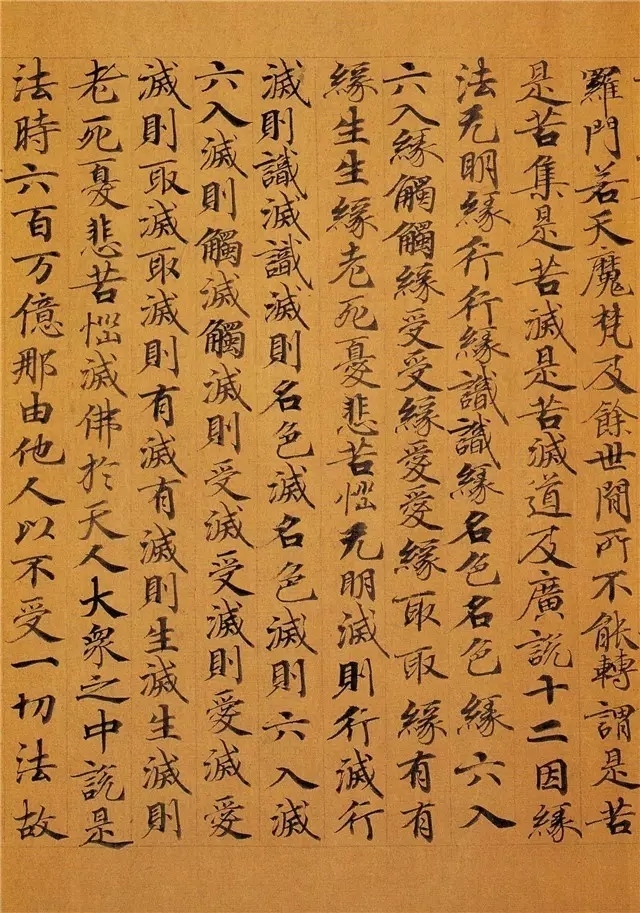 羅門若天魔梵及餘世間所不能轉謂是苦
是苦集是苦滅是苦滅道及廣說十二因緣
法无明緣行行緣識識緣名色名色緣六入
六入緣觸觸緣受受緣愛愛緣取取緣有有
緣生生緣老死憂悲苦惱无明滅則行滅行
滅則識滅識滅則名色滅名色滅則六入滅
六入滅則觸滅觸滅則受滅受滅則愛滅愛
滅則取滅取滅則有滅有滅則生滅生滅則
老死憂悲苦惱滅佛於天人大衆之中說是
法時六百万億那由他人以不受一切法故